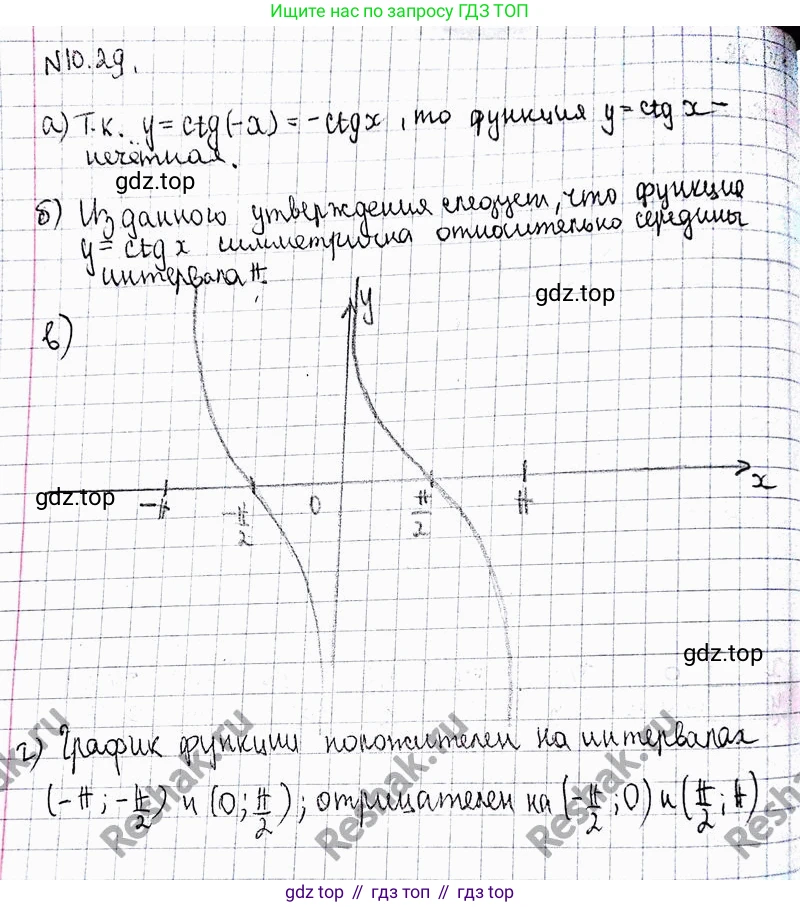 Ищите нас по запросу ГДЗ ТОП
N10.29.
а) Т.к. y = ctg(-x) = -ctgx, то функция y = ctg x -
нечётная.
gdz.top
б) Из данного утверждения следует, что функция
y = ctg x симметрична относительно середины
интервала π.
gdz.top
в)
y
gdz.top
-π
-π/2
0
π/2
π
x
gdz.top
г) График функции положителен на интервалах
(-π; -π/2) и (0; π/2); отрицателен на (-π/2; 0) и (π/2; π)
Reshak.ru
Reshak.ru
Reshak.ru
Reshak.ru
gdz top // гдз топ // gdz top